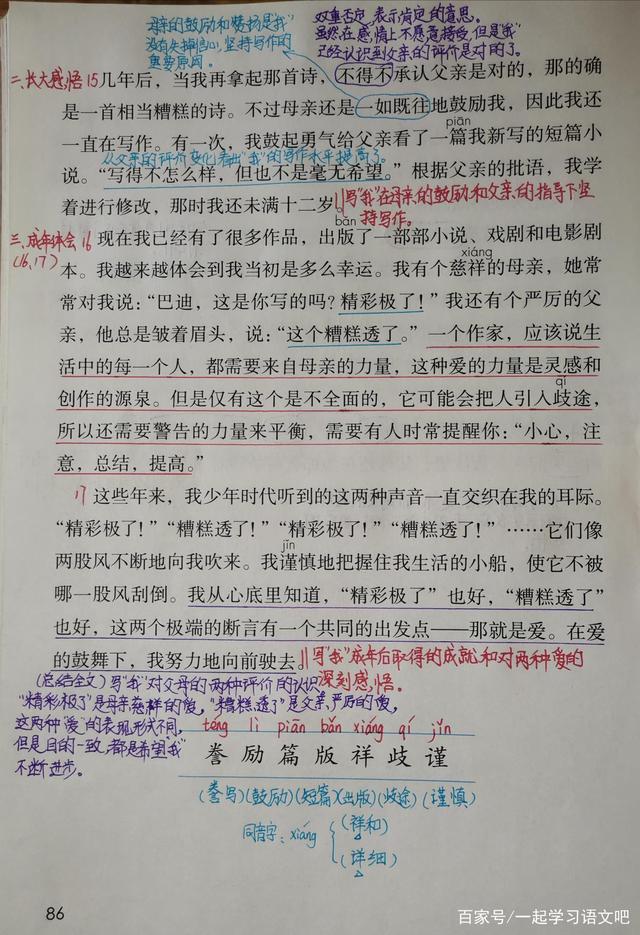 母亲的鼓励和赞扬是"我"
没有失掉信心,坚持写作的
重要原因。
双重否定,表示肯定的意思。
虽然在感情上不愿意接受,但是"我"
已经认识到父亲的评价是对的了。
二、长大感悟 15 几年后,当我再拿起那首诗,不得不承认父亲是对的,那的确
是一首相当糟糕的诗。不过母亲还是一如既往地鼓励我,因此我还
piān
一直在写作。有一次,我鼓起勇气给父亲看了一篇我新写的短篇小
从父亲的评价变化看出"我"的写作水平提高了。
说。“写得不怎么样,但也不是毫无希望。”根据父亲的批语,我学
着进行修改,那时我还未满十二岁。
写"我"在母亲的鼓励和父亲的指导下坚
持写作。
bǎn
三、成年体会 16 现在我已经有了很多作品,出版了一部部小说、戏剧和电影剧
(16、17)
xiáng
本。我越来越体会到我当初是多么幸运。我有个慈祥的母亲,她常
常对我说:“巴迪,这是你写的吗?精彩极了!”我还有个严厉的父
亲,他总是皱着眉头,说:“这个糟糕透了。”一个作家,应该说生
活中的每一个人,都需要来自母亲的力量,这种爱的力量是灵感和
qí
创作的源泉。但是仅有这个是不全面的,它可能会把人引入歧途,
所以还需要警告的力量来平衡,需要有人时常提醒你:“小心,注
意,总结,提高。”
17 这些年来,我少年时代听到的这两种声音一直交织在我的耳际。
“精彩极了!”“糟糕透了!”“精彩极了!”“糟糕透了!”……它们像
jǐn
两股风不断地向我吹来。我谨慎地把握住我生活的小船,使它不被
哪一股风刮倒。我从心底里知道,“精彩极了”也好,“糟糕透了”
也好,这两个极端的断言有一个共同的出发点——那就是爱。在爱
的鼓舞下,我努力地向前驶去。
写"我"成年后取得的成就和对两种爱的
深刻感悟。
(总结全文)写"我"对父母的两种评价的认识
"精彩极了"是母亲慈祥的爱,"糟糕透了"是父亲严厉的爱,
这两种"爱"的表现形式不同,
但是目的一致,都是希望"我"
不断进步。
téng lì piān bǎn xiáng qí jǐn
誊 励 篇 版 祥 歧 谨
(誊写)(鼓励)(短篇)(出版)(歧途)(谨慎)
同音字:xiáng
(祥和)
(详细)
86
百家号/一起学习语文吧